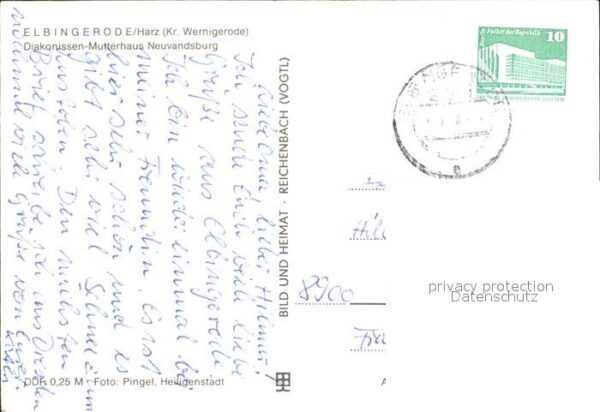 ELBINGERODE/Harz (Kr. Wernigerode)
Diakonissen-Mutterhaus Neuvandsburg
Liebe Oma, lieber Helmut!
Ich sende Euch viele liebe
Grüße aus Elbingerode.
Ich bin wieder einmal bei
meiner Freundin. Es ist
hier sehr schön und es
gibt sehr viel Schnee zum
austoben. Den nächsten
Brief schreibe ich aus Dresden
nochmals viele Grüße von Eurer
BILD UND HEIMAT · REICHENBACH (VOGTL)
DDR 0,25 M · Foto: Pingel, Heiligenstadt
Berlin Palast der Republik
10
8900
privacy protection
Datenschutz